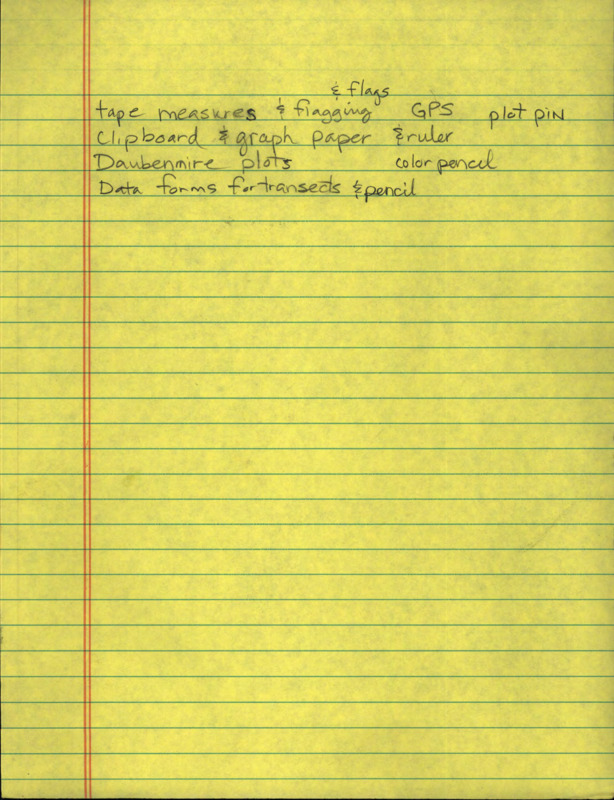 & flags
tape measures & flagging GPS plot pin
Clipboard & graph paper & ruler
Daubenmire plots color pencil
Data forms for transects & pencil